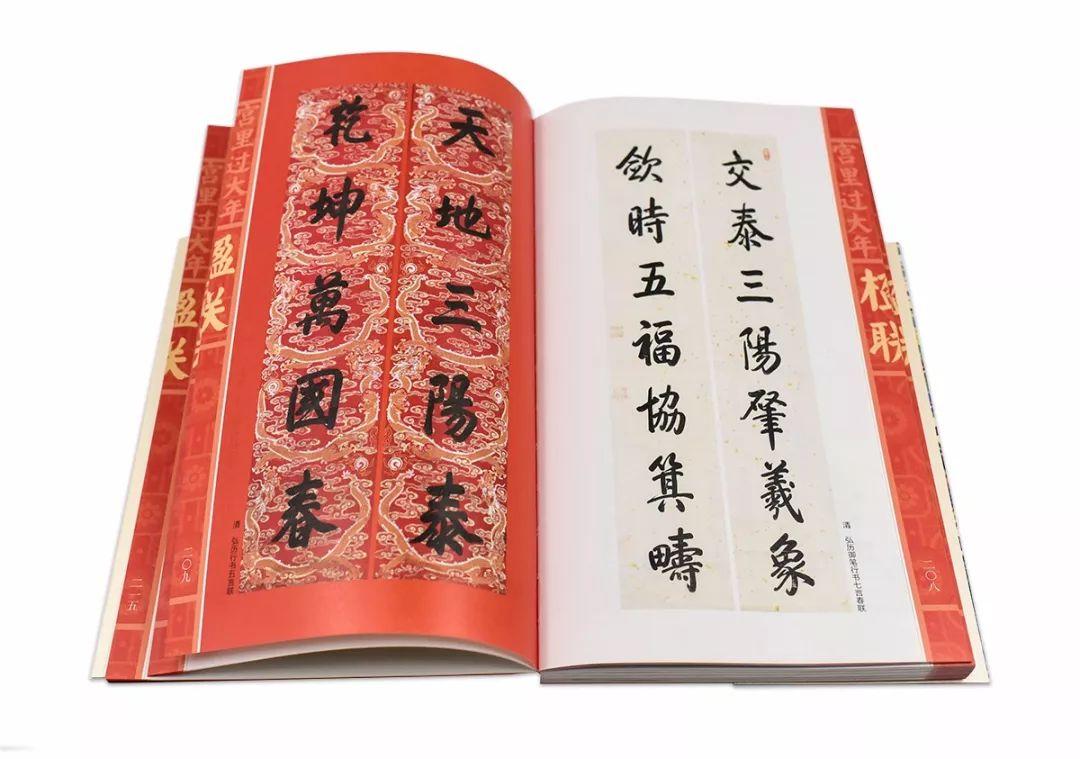 宫里过大年
楹联
二〇八
清 弘历御笔行书七言春联
交泰三陽肇羲象
欽時五福協箕疇
天地三陽泰
乾坤萬國春
清 弘历行书五言联
宫里过大年
楹联
二〇九
宫里过大年
楹联
二一五